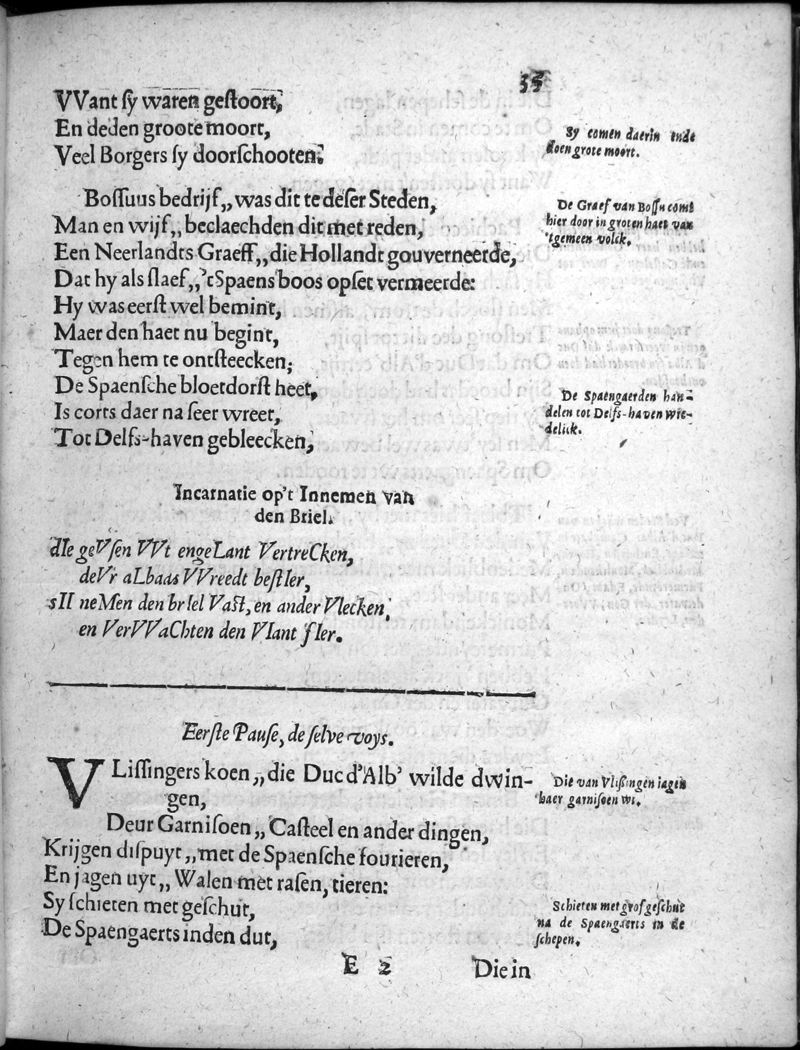 35
VVant ſy waren geſtoort,
En deden groote moort,
Veel Borgers ſy doorſchooten.
Sy comen daerin ende
doen grote moort.
Boſſuus bedrijf,, was dit te deſer Steden,
Man en wijf,, beclaechden dit met reden,
Een Neerlandts Graeff,, die Hollandt gouverneerde,
Dat hy als ſlaef,, 'tSpaens boos opſet vermeerde:
Hy was eerſt wel bemint,
Maer den haet nu begint,
Tegen hem te ontſteecken;
De Spaenſche bloetdorſt heet,
Is corts daer na ſeer wreet,
Tot Delfs-haven gebleecken,
De Graef van Boſſu comt
hier door in groten haet van
'tgemeen volck.
De Spaengaerden han-
delen tot Delfs-haven wre-
delick.
Incarnatie op't Innemen van
den Briel.
dIe geVſen VVt engeLant VertreCken,
deVr aLbaas VVreedt beſtIer,
sII neMen den brIel Vaſt, en ander Vlecken,
en VerVVaChten den VIant fIer.
Eerſte Pauſe, de ſelve voys.
VLiſſingers koen,, die Duc d'Alb' wilde dwin-
gen,
Deur Garniſoen,, Caſteel en ander dingen,
Krijgen diſpuyt,, met de Spaenſche fourieren,
En jagen uyt,, Walen met raſen, tieren:
Sy ſchieten met geſchut,
De Spaengaerts inden dut,
Die van Vliſſingen iagen
haer garniſoen wt.
Schieten met grof geſchut
na de Spaengaerts in de
ſchepen.
E 2
Die in